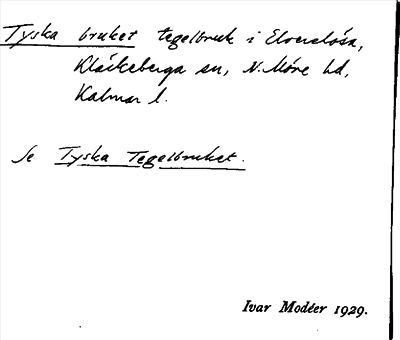 Tyska bruket tegelbruk i Elverslösa,
Kläckeberga sn, N. Möre hd,
Kalmar l.
Se Tyska Tegelbruket.
Ivar Modéer 1929.